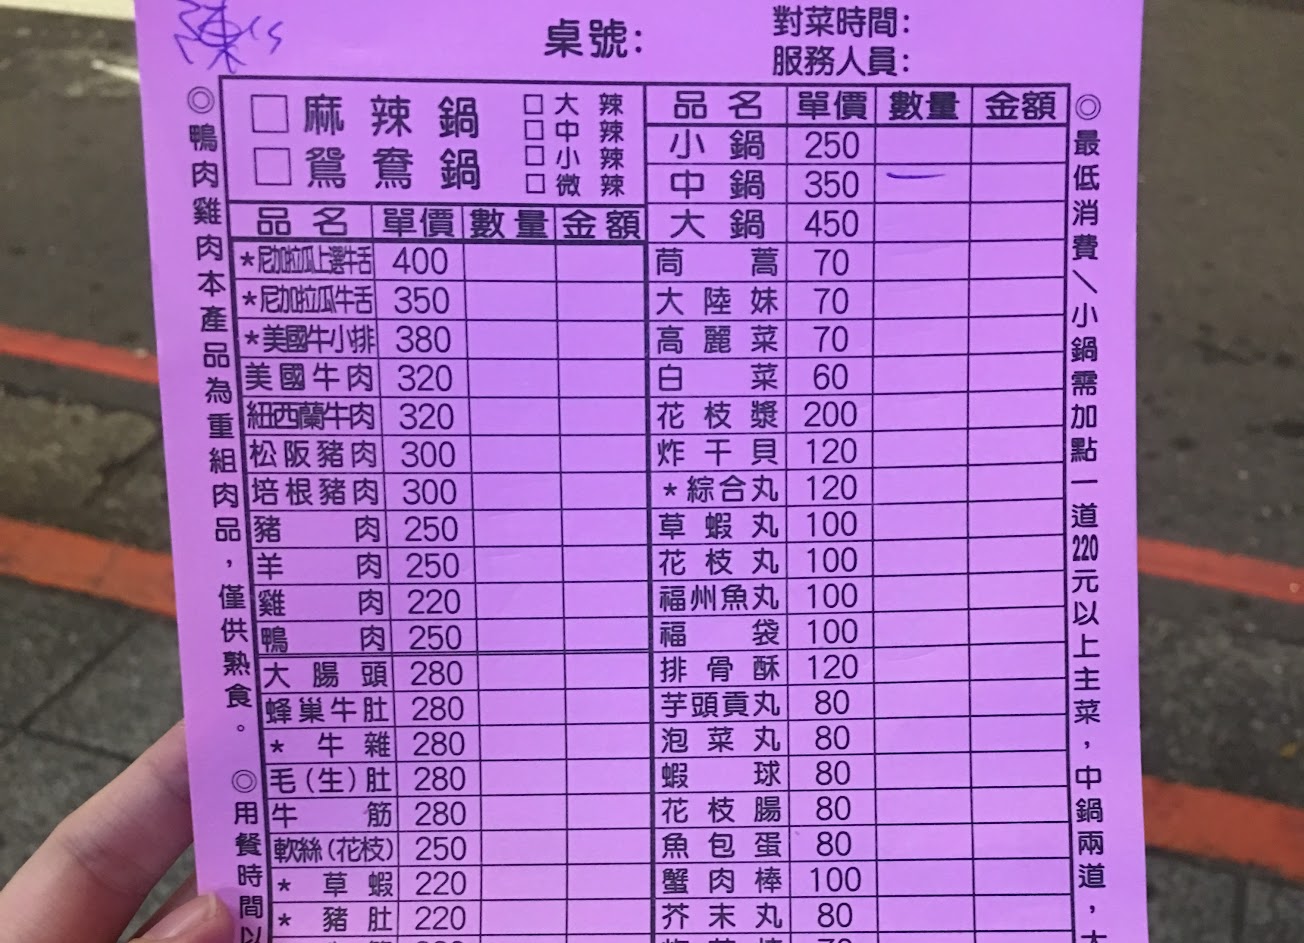 陳
桌號：
對菜時間：
服務人員：
◎鴨肉雞肉本產品為重組肉品，僅供熟食。
◎用餐時間以
□麻辣鍋
□鴛鴦鍋
□大辣
□中辣
□小辣
□微辣
品名 單價 數量 金額
*尼加拉瓜上選牛舌 400
*尼加拉瓜牛舌 350
*美國牛小排 380
美國牛肉 320
紐西蘭牛肉 320
松阪豬肉 300
培根豬肉 300
豬肉 250
羊肉 250
雞肉 220
鴨肉 250
大腸頭 280
蜂巢牛肚 280
*牛雜 280
毛(生)肚 280
牛筋 280
軟絲(花枝) 250
*草蝦 220
*豬肚 220
品名 單價 數量 金額
小鍋 250
中鍋 350 一
大鍋 450
茼蒿 70
大陸妹 70
高麗菜 70
白菜 60
花枝漿 200
炸干貝 120
*綜合丸 120
草蝦丸 100
花枝丸 100
福州魚丸 100
福袋 100
排骨酥 120
芋頭貢丸 80
泡菜丸 80
蝦球 80
花枝腸 80
魚包蛋 80
蟹肉棒 100
芥末丸 80
◎最低消費\小鍋需加點一道220元以上主菜，中鍋兩道，大